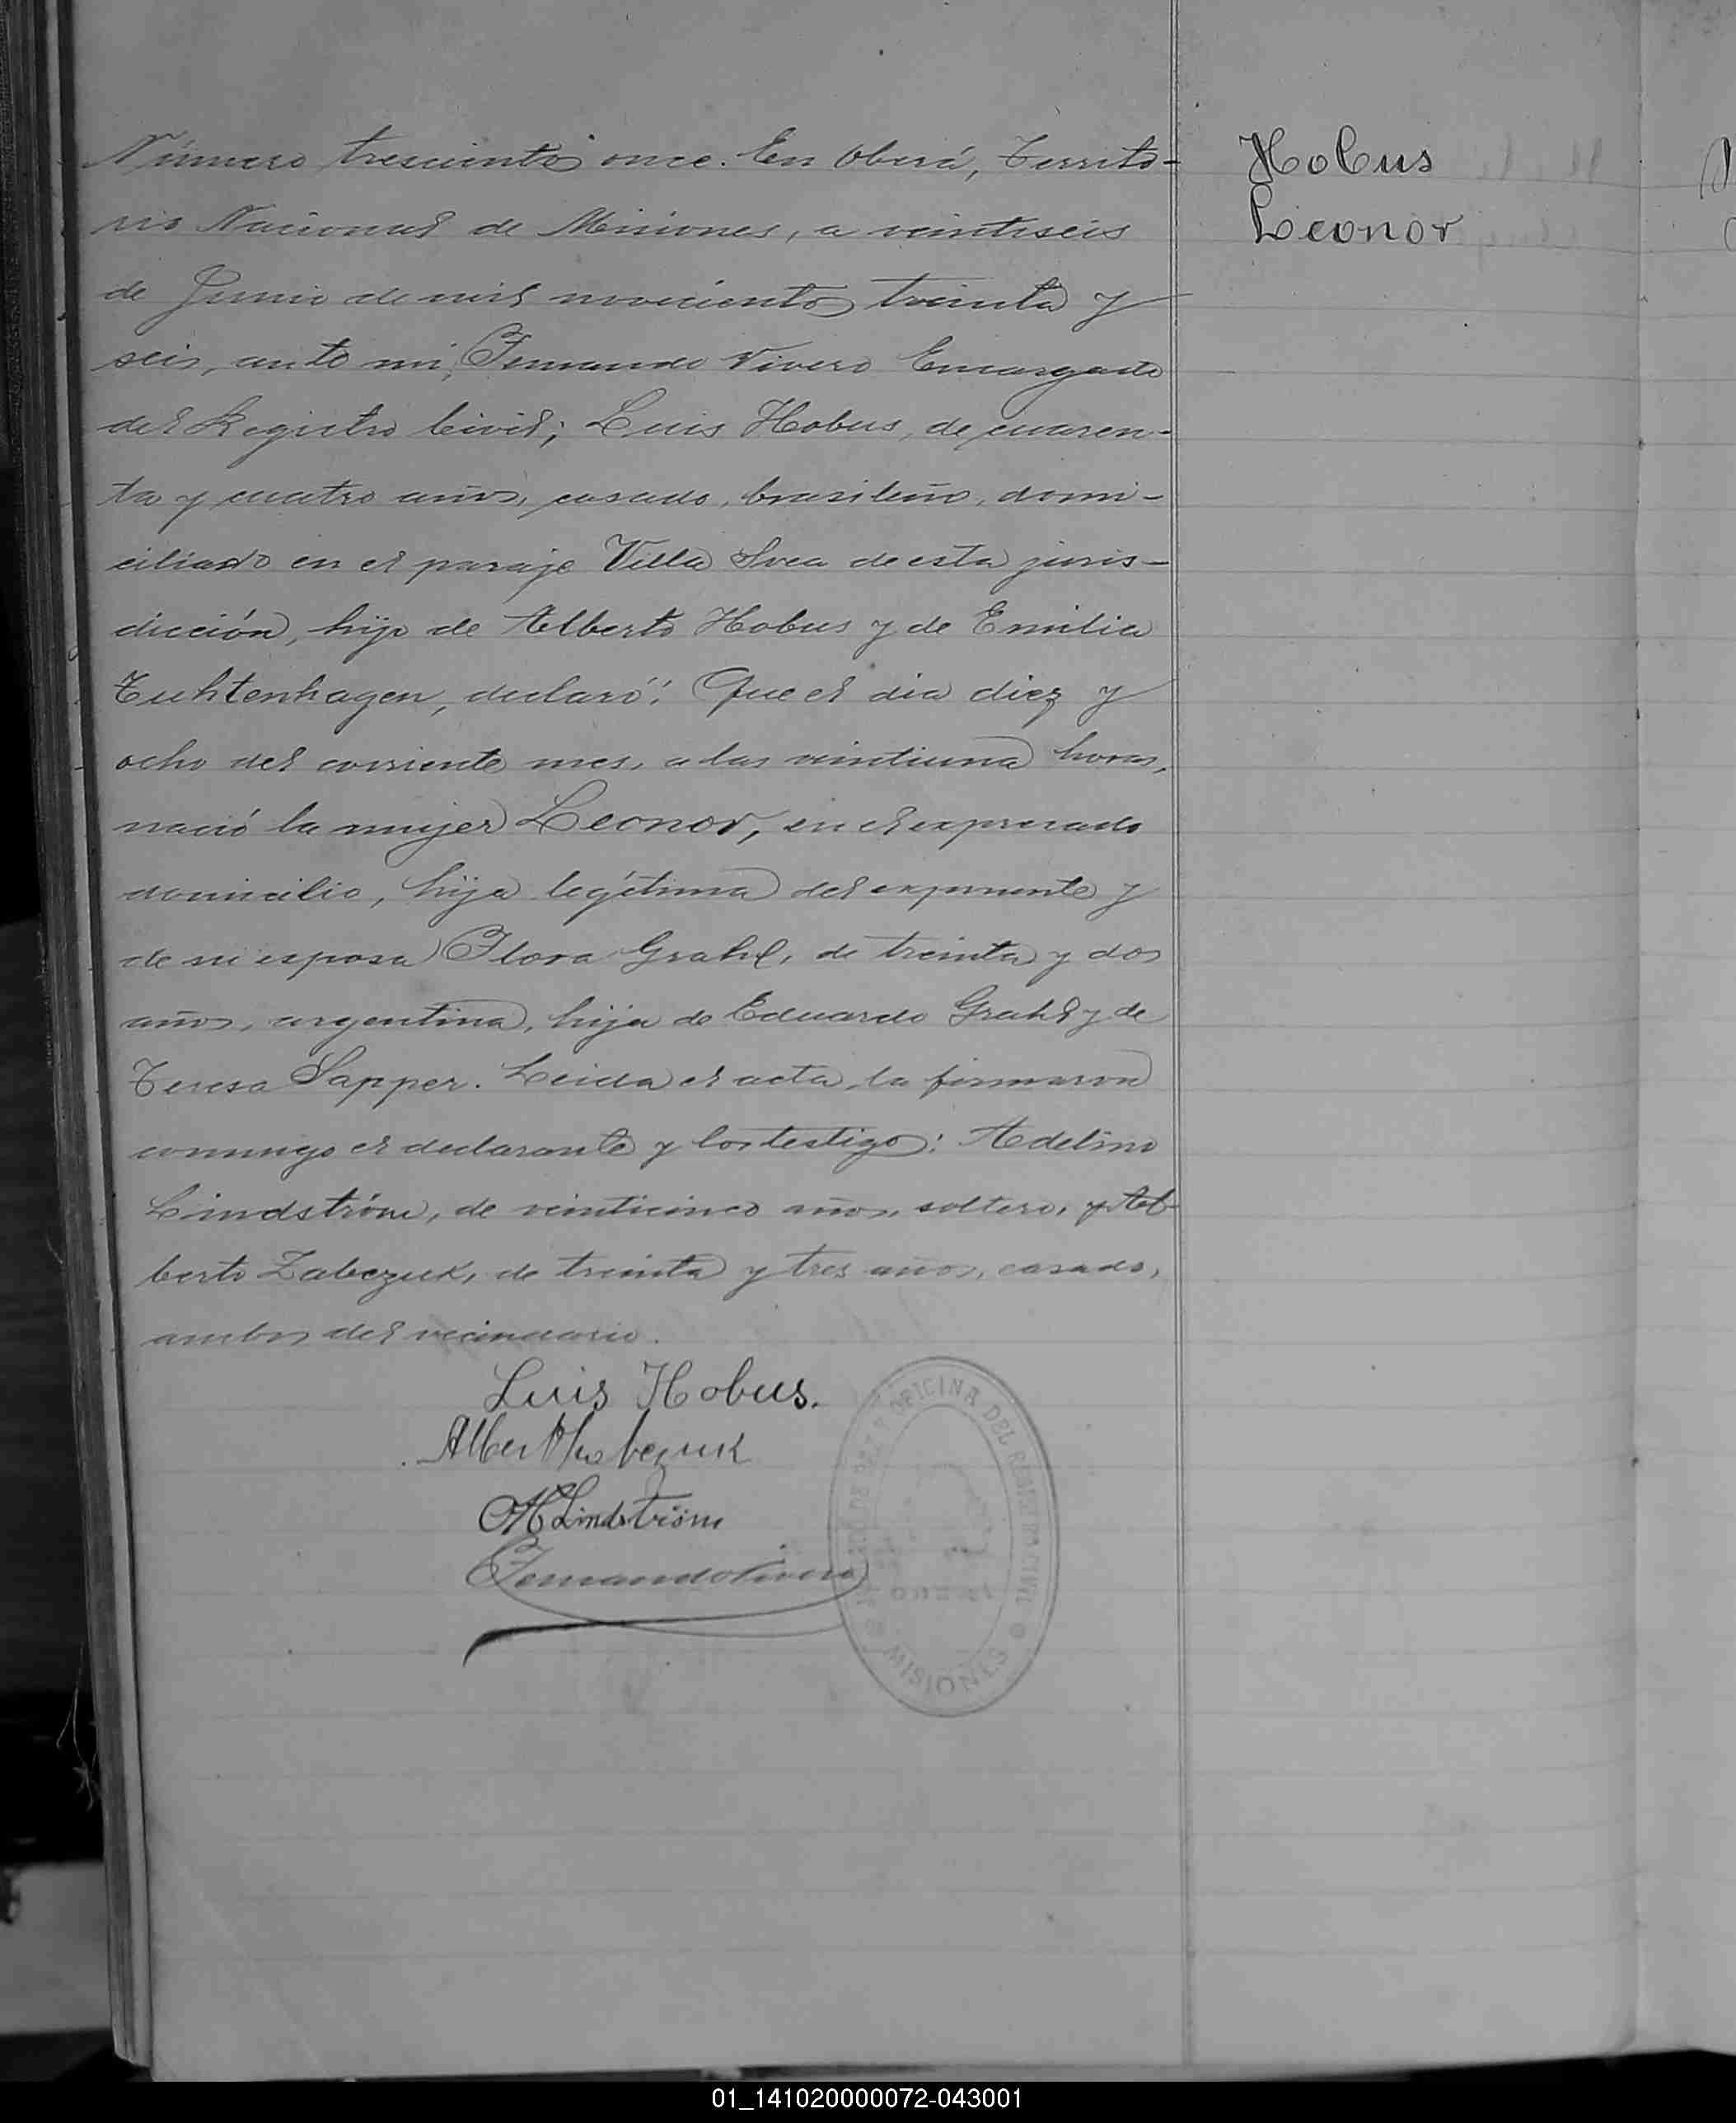 Número trescientos once. En Oberá, Territo-
rio Nacional de Misiones, a veintiseis
de Junio de mil novecientos treinta y
seis, ante mi, Fernando Vivero Encargado
del Registro Civil; Luis Hobus, de cuaren-
ta y cuatro años, casado, brasileño, domi-
ciliado en el paraje Villa Svea de esta juris-
dicción, hijo de Alberto Hobus y de Emilia
Tuhtenhagen, declaró: Que el dia diez y
ocho del corriente mes, a las veintiuna horas,
nació la mujer Leonor, en el expresado
domicilio, hija legítima del exponente y
de su esposa Flora Grahl, de treinta y dos
años, argentina, hija de Eduardo Grahl y de
Teresa Sapper. Leida el acta, la firmaron
conmigo el declarante y los testigos: Adelino
Lindström, de veinticinco años, soltero, y Al-
berto Zabczuk, de treinta y tres años, casado,
ambos del vecindario.
Luis Hobus.
Lindström
Fernando Vivero
Hobus
Leonor
OFICINA DEL REGISTRO CIVIL
MISIONES
01_141020000072-043001